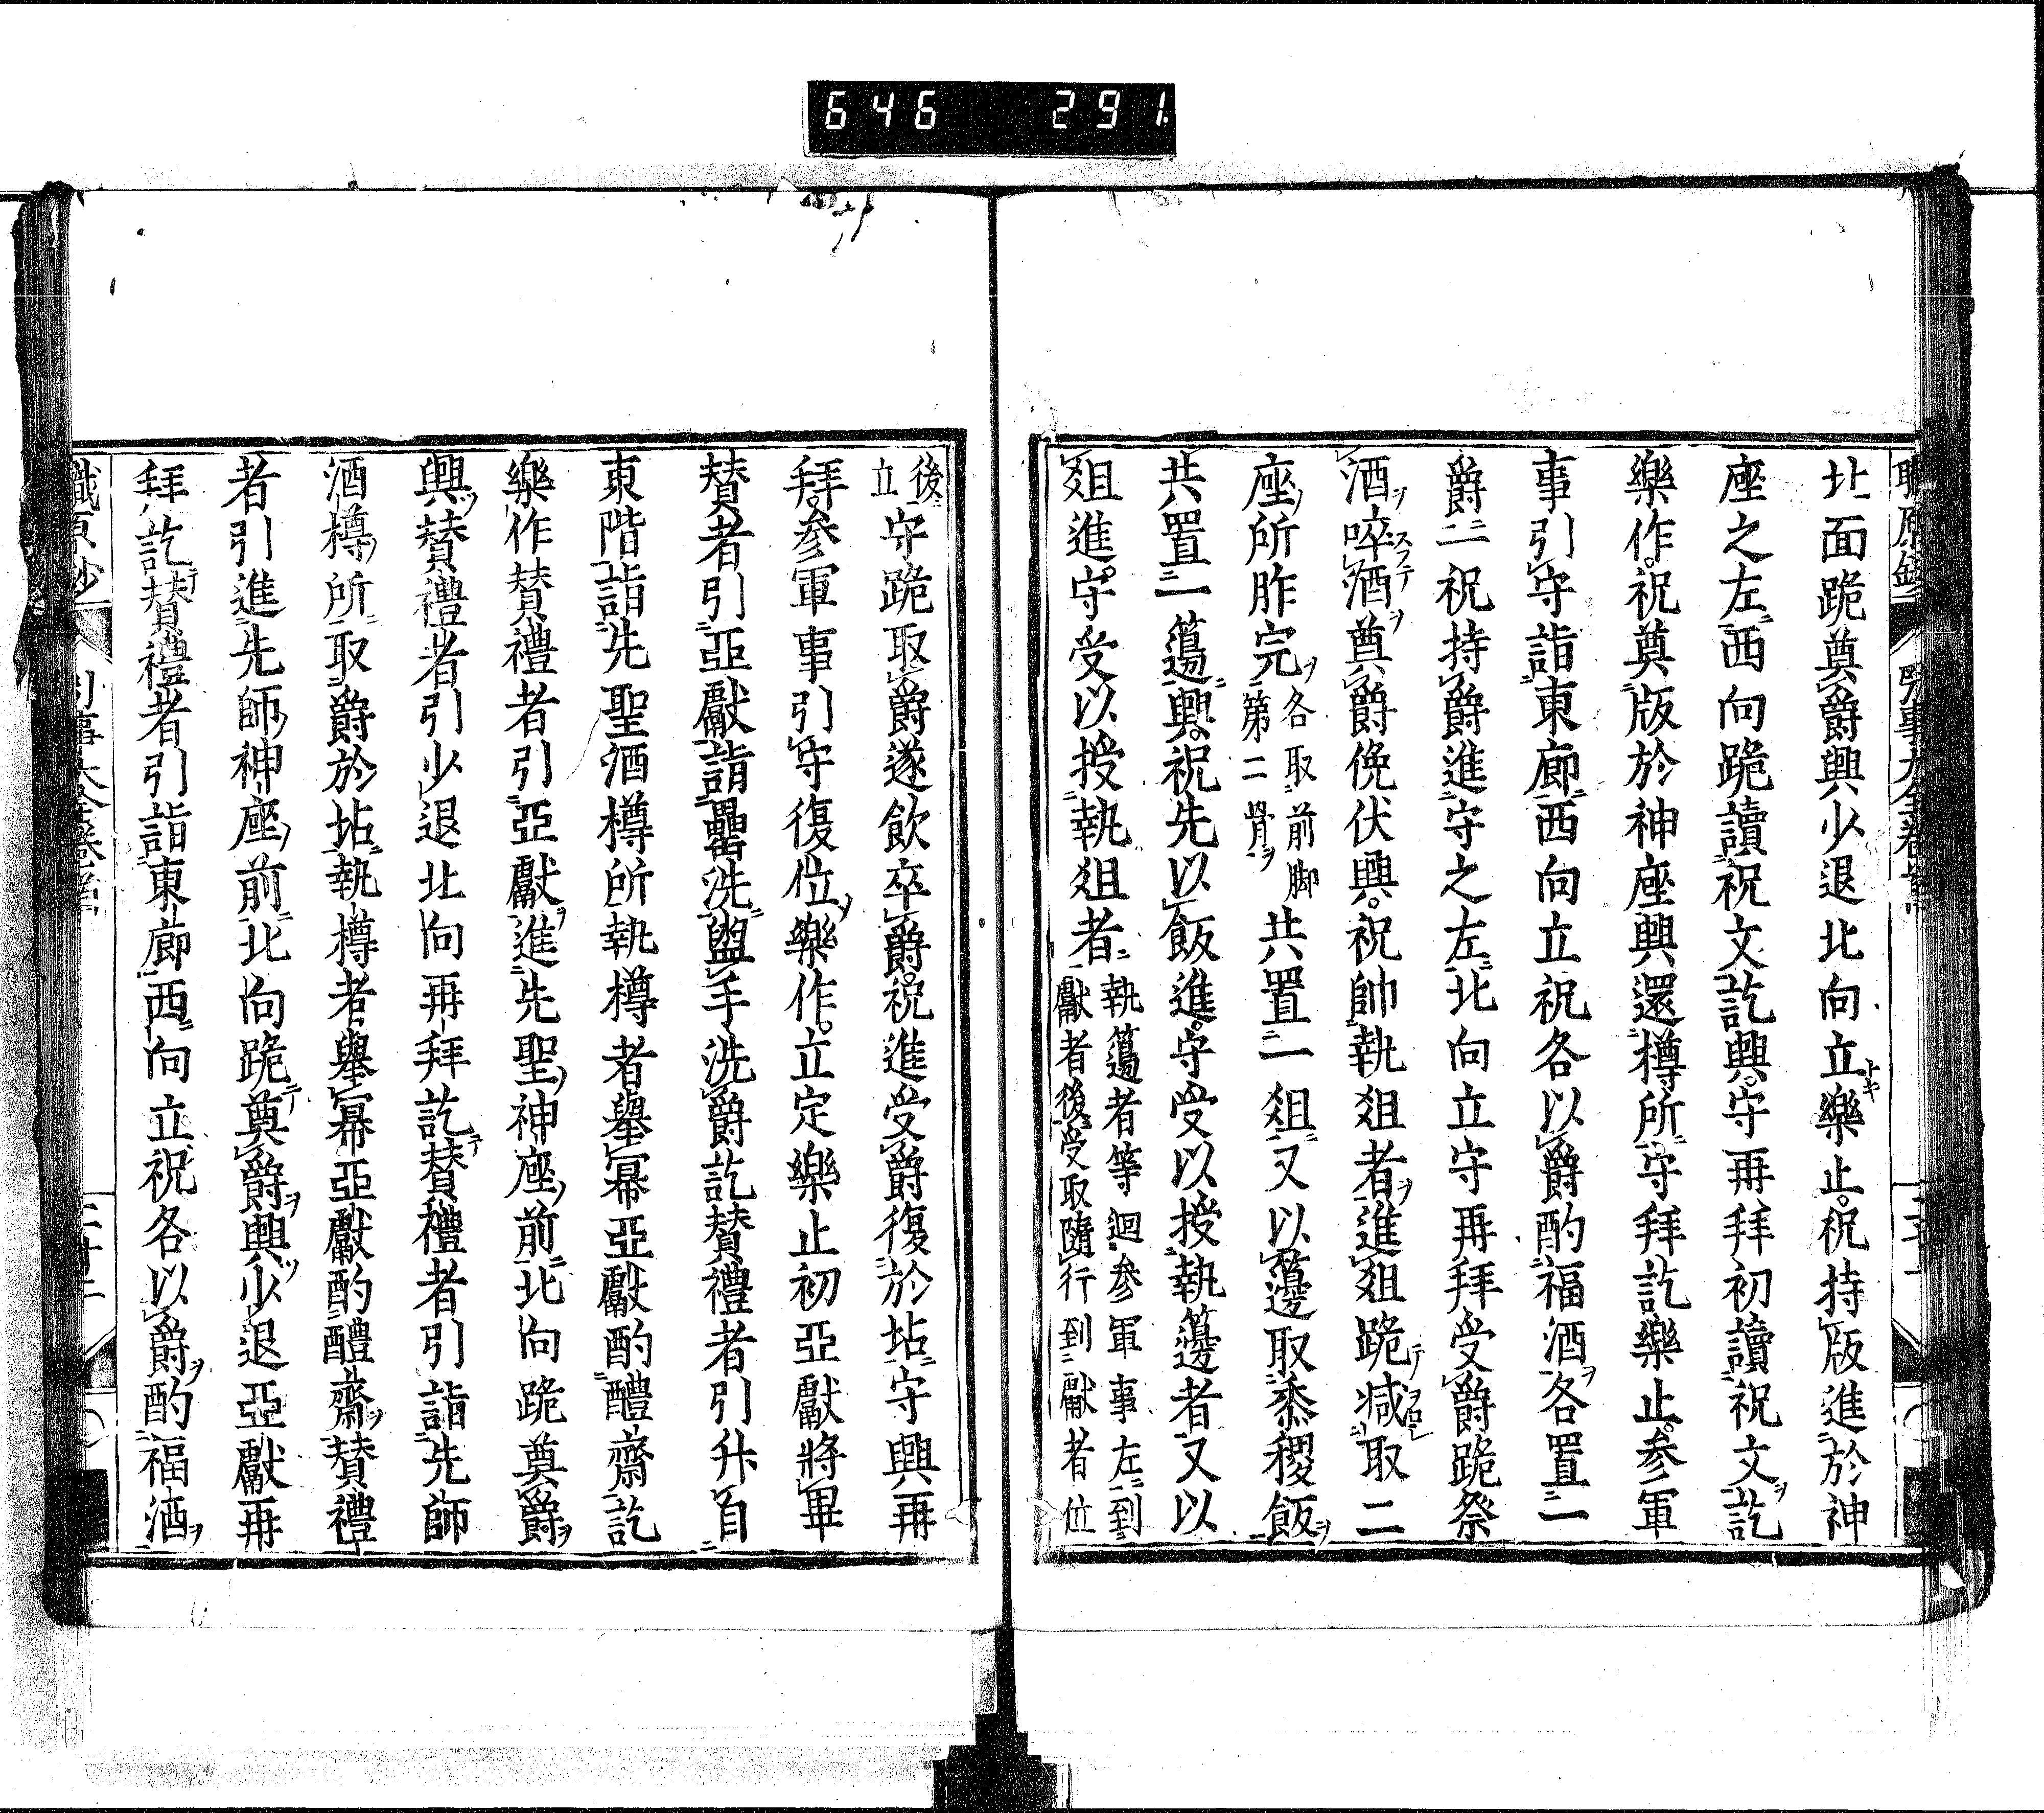 646 291
北面跪奠爵興少退北向立樂止祝持版進於神
座之左西向跪讀祝文訖興守再拜初讀祝文訖
樂作祝奠版於神座興還樽所守拜訖樂止参軍
事引守詣東廊西向立祝各以爵酌福酒各置一
爵一祝持爵進守之左北向立守再拜受爵跪祭
酒啐酒奠爵俛伏興祝帥執俎者進俎跪减取二
座所胙完各取前脚第二骨共置一俎又以籩取黍稷飯
共置一籩興祝先以飯進守受以授執籩者又以
俎進守受以授執俎者執籩者等迴参軍事左到獻者後受取隨行到獻者位
後立守跪取爵遂飲卒爵祝進受爵復於坫守興再
拜参軍事引守復位樂作立定樂止初亞獻將畢
賛者引亞獻詣罍洗盥手洗爵訖賛禮者引升自
東階詣先聖酒樽所執樽者舉冪亞獻酌醴齋訖
樂作賛禮者引亞獻進先聖神座前北向跪奠爵
興賛禮者引少退北向再拜訖賛禮者引詣先師
酒樽所取爵於坫執樽者舉冪亞獻酌醴齋賛禮
者引進先師神座前北向跪奠爵興少退亞獻再
拜訖賛禮者引詣東廊西向立祝各以爵酌福酒
職原抄